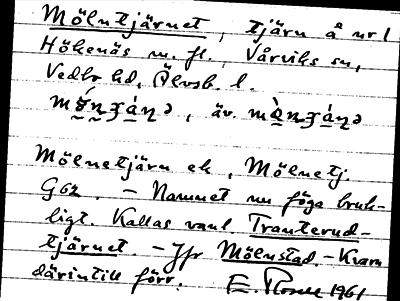 Mölntjärnet, tjärn å nr 1
Hökenäs m. fl., Vårviks sn,
Vedbo hd, Älvsb. l.
, äv.
Mölnetjärn ek, Mölnetj.
G62. – Namnet nu föga bruk-
ligt. Kallas vanl Tranterud-
tjärnet. – Jfr Mölnstad. – Kvarn
därintill förr. 1961